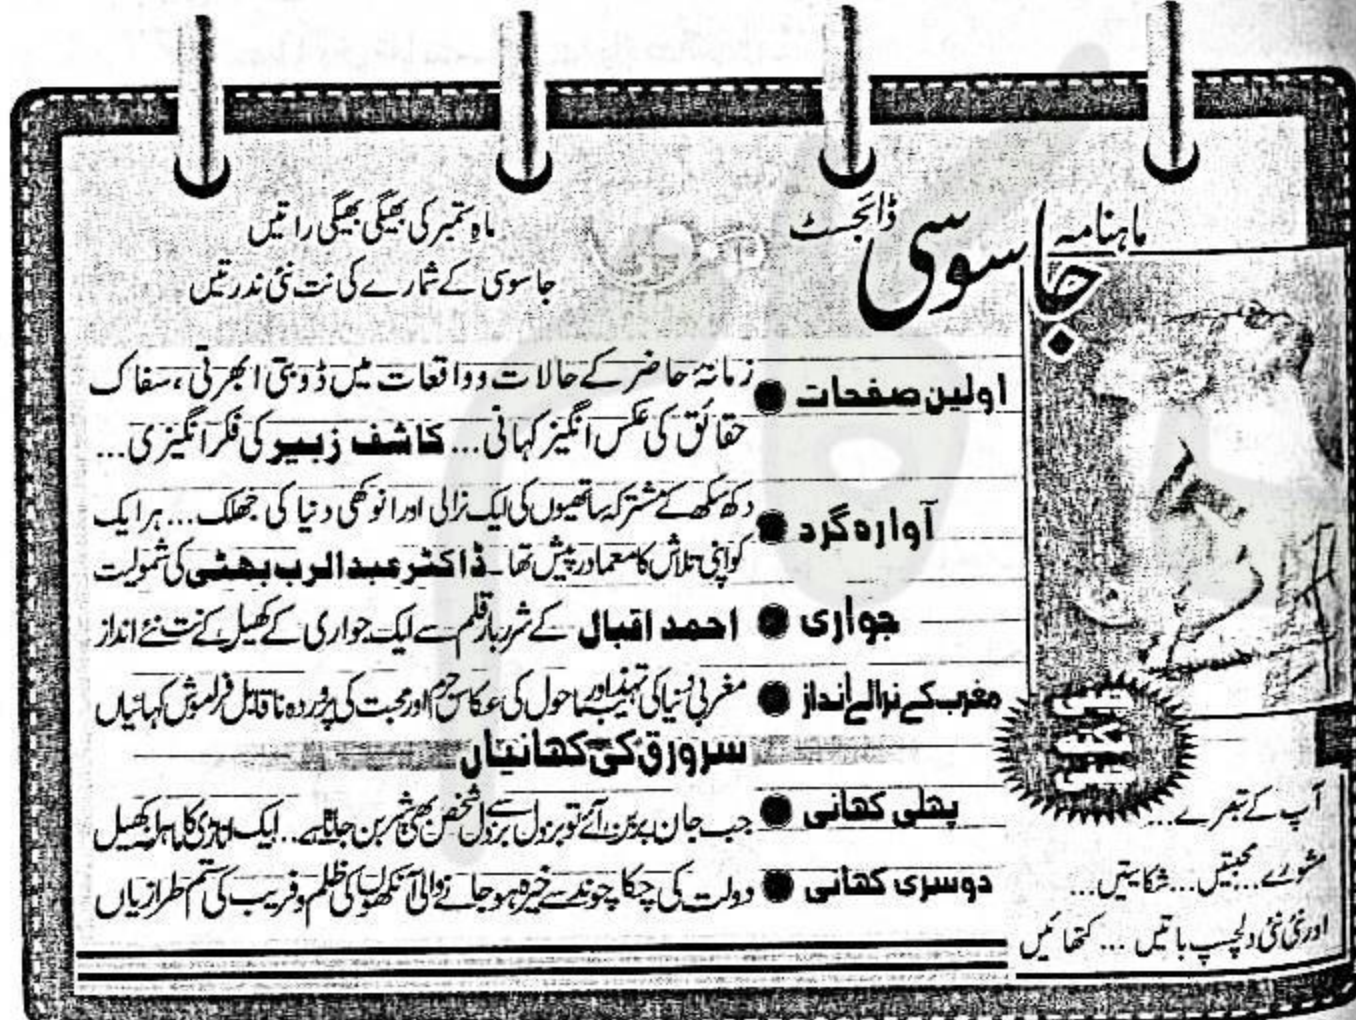 ماہنامہ جاسوسی ڈائجسٹ
ماہِ ستمبر کی بھیگی بھیگی راتیں
جاسوسی کے شمارے کی نت نئی ندرتیں
اولین صفحات ● زمانۂ حاضر کے حالات و واقعات میں ڈوبتی ابھرتی، سفاک
حقائق کی عکس انگیز کہانی... کاشف زبیر کی فکر انگیزی...
آوارہ گرد ● دکھ سکھ کے مشترکہ ساتھیوں کی ایک نرالی اور انوکھی دنیا کی جھلک... ہر ایک
کو اپنی تلاش کا معما درپیش تھا۔ ڈاکٹر عبدالرب بھٹی کی شمولیت
جواری ● احمد اقبال کے شرربار قلم سے ایک جواری کے کھیل کے نت نئے انداز
مغرب کے نرالے انداز ● مغربی دنیا کی تہذیب اور ماحول کی عکاس جرم اور محبت کی پروردہ ناقابل فراموش کہانیاں
سرورق کی کہانیاں
پہلی کہانی ● جب جان پر بن آئے تو بزدل سے بزدل شخص بھی شیر بن جاتا ہے... ایک اناڑی کا ماہرانہ کھیل
دوسری کہانی ● دولت کی چکا چوند سے خیرہ ہو جانے والی آنکھوں کی ظلم و فریب کی ستم طرازیاں
چینی
نکتہ
چینی
آپ کے تبصرے...
مشورے... محبتیں... شکایتیں...
اور نئی نئی دلچسپ باتیں... کتھائیں